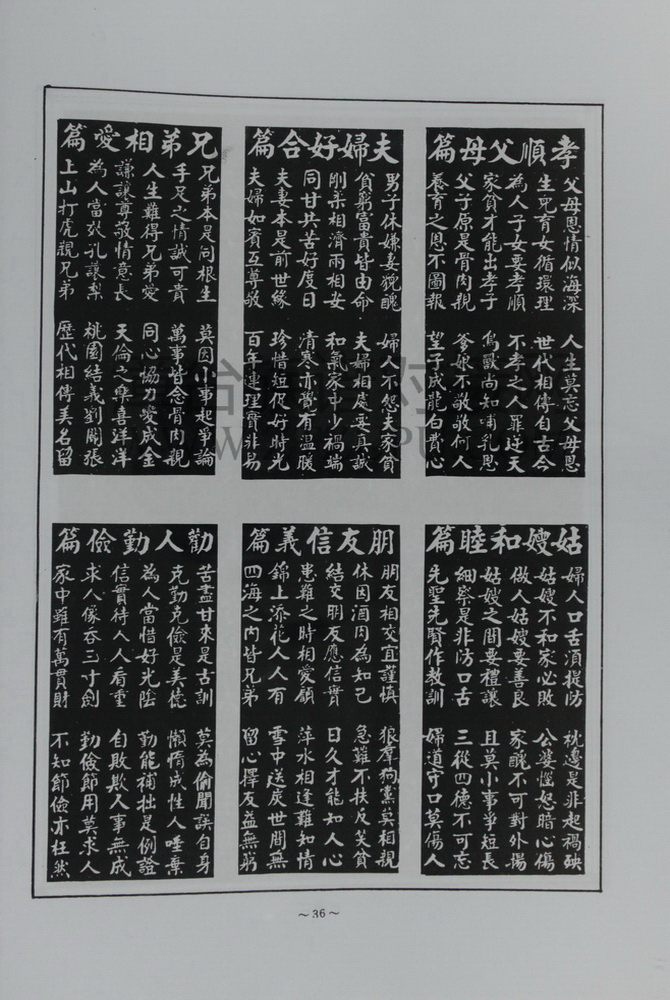 孝順父母篇
父母恩情似海深　人生莫忘父母恩
生兒育女循環理　世代相傳自古今
為人子女要孝順　不孝之人罪逆天
家貧才能出孝子　鳥獸尚知哺乳恩
父子原是骨肉親　爹娘不敬敬何人
養育之恩不圖報　望子成龍白費心
夫婦好合篇
男子休嫌妻貌醜　婦人不怨夫家貧
貧窮富貴皆由命　夫婦相處要真誠
剛柔相濟兩相安　和氣家中少禍端
同甘共苦好度日　清寒亦覺有溫暖
夫妻本是前世緣　珍惜短促好時光
夫婦如賓互尊敬　百年連理實非易
兄弟相愛篇
兄弟本是同根生　莫因小事起爭論
手足之情誠可貴　萬事皆念骨肉親
人生難得兄弟愛　同心協力變成金
謙讓尊敬情意長　天倫之樂喜洋洋
為人當效孔讓梨　桃園結義劉關張
上山打虎親兄弟　歷代相傳美名留
姑嫂和睦篇
婦人口舌須提防　枕邊是非起禍殃
姑嫂不和家必敗　公婆惱怒暗心傷
做人姑嫂要善良　家醜不可對外揚
姑嫂之間要禮讓　且莫小事爭短長
細察是非防口舌　三從四德不可忘
先聖先賢作教訓　婦道守口莫傷人
朋友信義篇
朋友相交宜謹慎　狼群狗黨莫相親
休因酒肉為知己　急難不扶反笑貧
結交朋友應信實　日久才能知人心
患難之時相愛顧　萍水相逢難知情
錦上添花人人有　雪中送炭世間無
四海之內皆兄弟　留心擇友益無窮
勸人勤儉篇
苦盡甘來是古訓　莫為偷閒誤自身
克勤克儉是美德　懶惰成性人唾棄
為人當惜好光陰　勤能補拙是例證
信實待人人看重　自欺欺人事無成
求人像吞三寸劍　勤儉節用莫求人
家中雖有萬貫財　不知節儉亦枉然
～36～